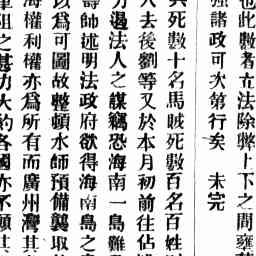 也此數者立法除弊上下之間雍
強諸政可次第行矣　未完
兵死數十名馬賊死數百名百姓
人去後劉等又於本月初前往佔
力遏法人之謀竊恐海南一島難
壽師述明法政府欲得海南島之
以為可圖故整頓水師預備襲取
海權利權亦為所有而廣州灣其
阻之甚力大約各國亦不願其